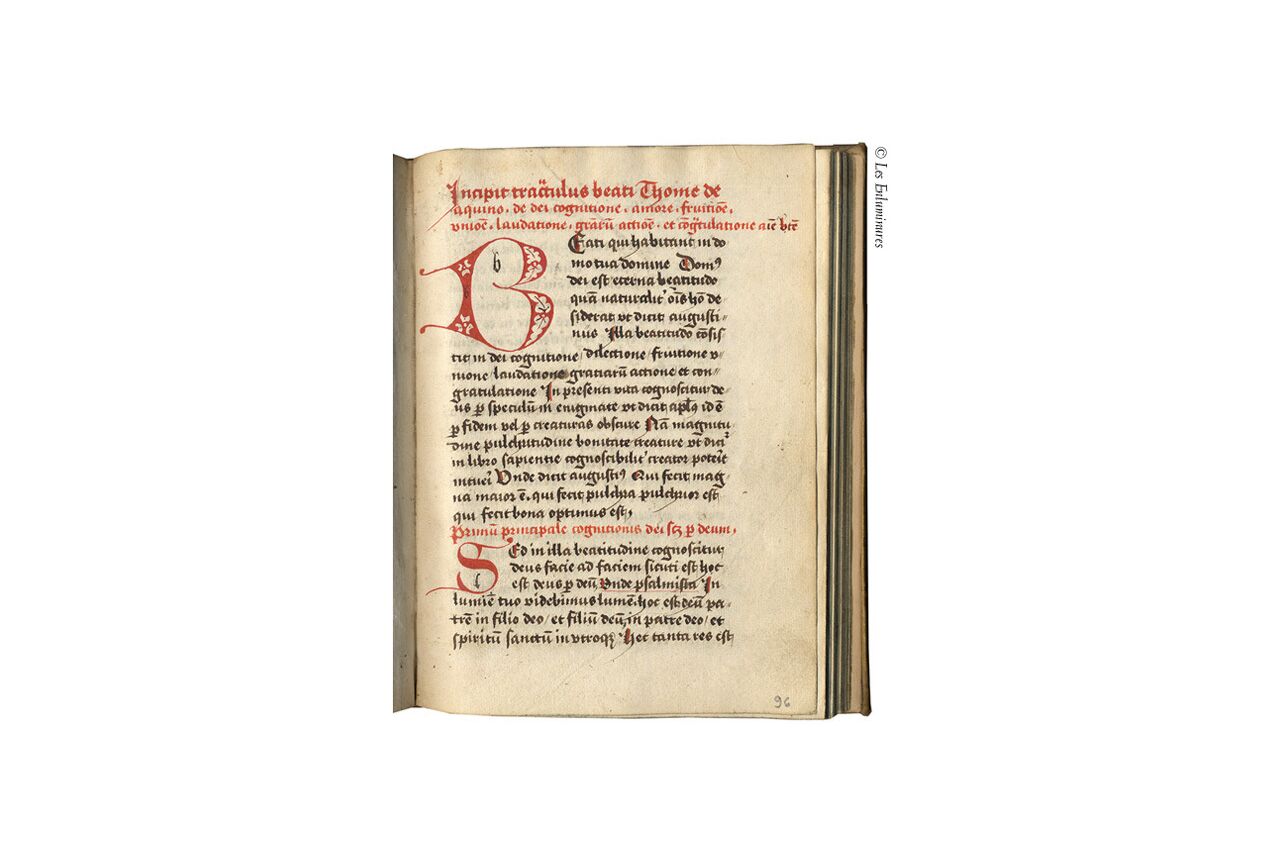 Incipit tractulus beati Thome de
aquino. de dei cognitione. amore. fruitiōe.
vnioē. laudatione. grāꝝ actiōe. et cōgͣtulatione aīe bt̄e
Beati qui habitant in do
mo tua domine Domꝰ
dei est eterna beatitudo
quā naturalit' oīs hō de
siderat vt dicit augusti-
nus Illa beatitudo cōsis-
tit in dei cognitione / dilectione / fruitione v-
nione / laudatione gratiarū actione et con-
gratulatione In presenti vita cognoscitur de-
us ꝑ speculū in enigmate vt dicit aplꝰs id ē
ꝑ fidem vel ꝑ creaturas obscure Nā magnitu
dine pulchritudine bonitate creature vt dicit
in libro sapientie cognoscibilit' creator poterit
intueri Vnde dicit augustiꝰ Qui fecit mag-
na maior ē. qui fecit pulchra pulchrior est
qui fecit bona optimus est,
Primū principale cognitionis dei scꝫ ꝑ deum.
SEd in illa beatitudine cognoscitur
deus facie ad faciem sicuti est hoc
est deus ꝑ deū Vnde psalmista In
lumiē tuo videbimus lumē. hoc est deū pa-
trē in filio deo / et filiū deū in patre deo / et
spiritū sanctū in vtroqꝫ Hec tanta res est
96
b
© Les Enluminures